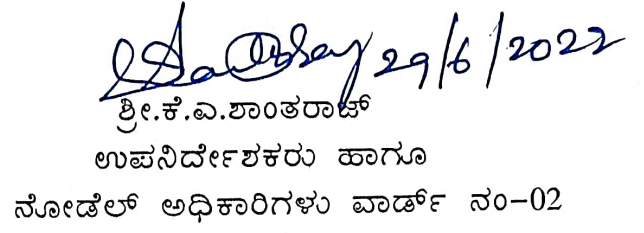 29/6/2022
ಶ್ರೀ.ಕೆ.ಎ.ಶಾಂತರಾಜ್
ಉಪನಿರ್ದೇಶಕರು ಹಾಗೂ
ನೋಡೆಲ್ ಅಧಿಕಾರಿಗಳು ವಾರ್ಡ್ ನಂ-02